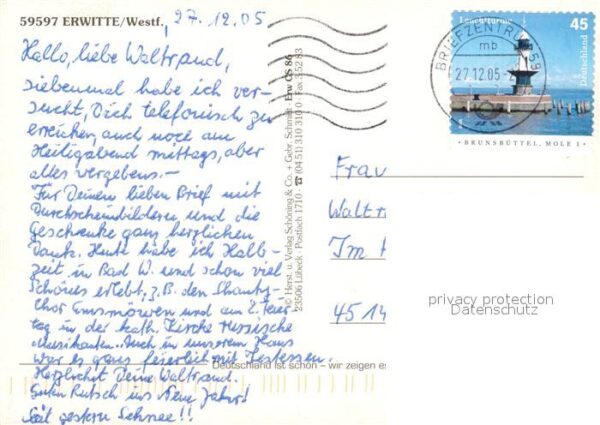 59597 ERWITTE/Westf., 27.12.05
Hallo, liebe Waltraud,
siebenmal habe ich ver-
sucht, Dich telefonisch zu
erreichen, auch noch am
Heiligabend mittags, aber
alles vergebens. –
Für Deinen lieben Brief mit
Durchscheinbildern und die
Geschenke ganz herzlichen
Dank. Heute habe ich Halb-
zeit in Bad W. und schon viel
Schönes erlebt, z.B. den Shanty-
Chor Emsmöwen und am 2. Feier
tag in der kath. Kirche russische
Musikanten. Auch in unserem Haus
war es ganz feierlich mit Festessen.
Herzlichst Deine Waltraud.
Guten Rutsch ins Neue Jahr!
Seit gestern Schnee!!
© Herst. u. Verlag Schöning & Co. + Gebr. Schmidt · Erw GS 86
23506 Lübeck · Postfach 1710 · ☎ (04 51) 310 310 · Fax 3 52 83
Leuchttürme
45
Deutschland
BRUNSBÜTTEL, MOLE 1
BRIEFZENTRUM 59
mb
27.12.05
Frau
Waltr
Im
45 14
privacy protection
Datenschutz
Deutschland ist schön – wir zeigen es